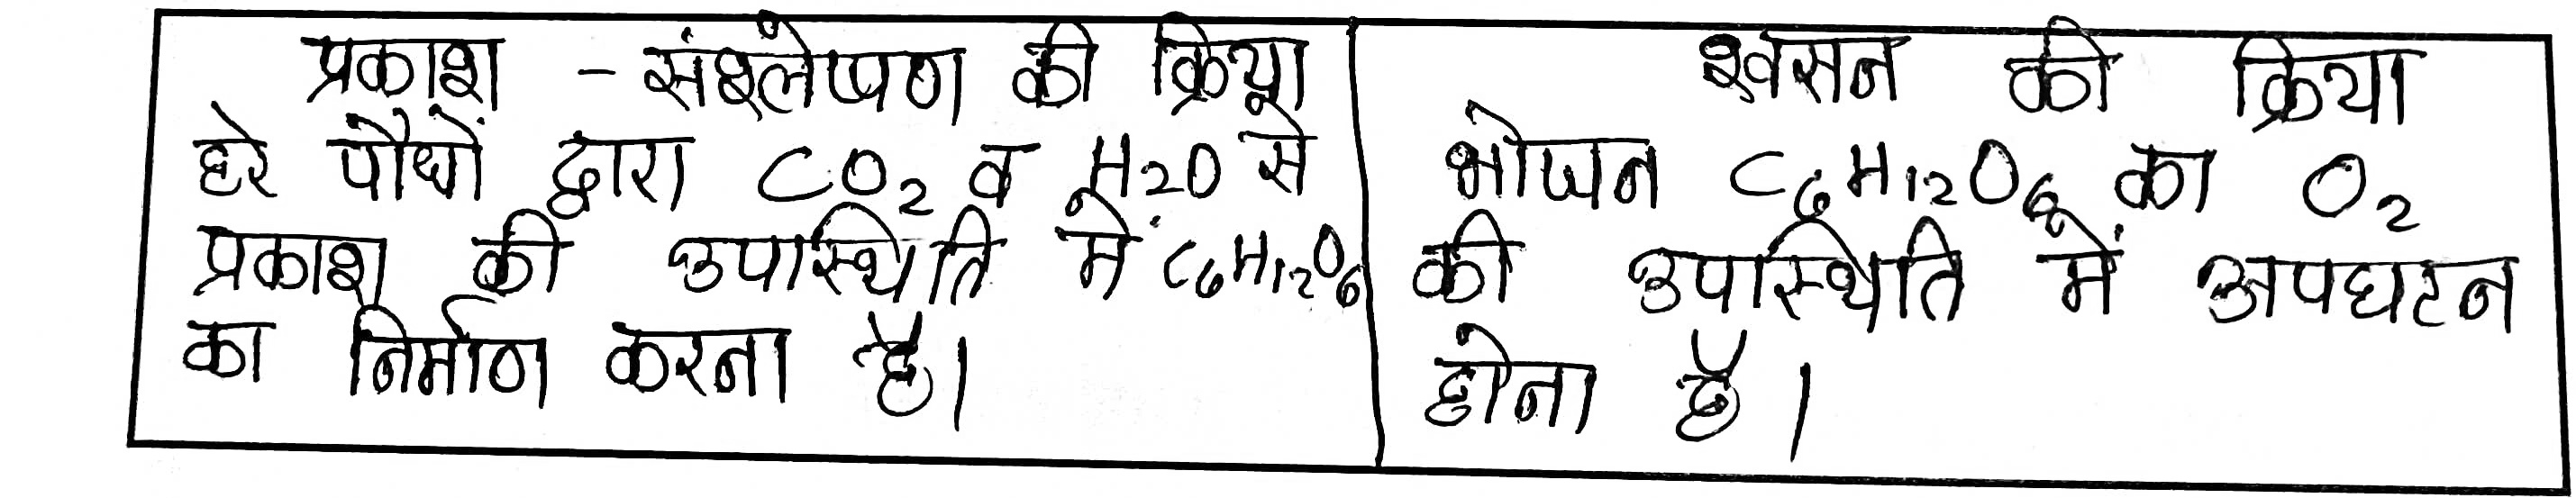 प्रकाश - संश्लेषण की क्रिया
हरे पौधों द्वारा CO2 व H2O से
प्रकाश की उपस्थिति में C6H12O6
का निर्माण करना है।
श्वसन की क्रिया
भोजन C6H12O6 का O2
की उपस्थिति में अपघटन
होना है।